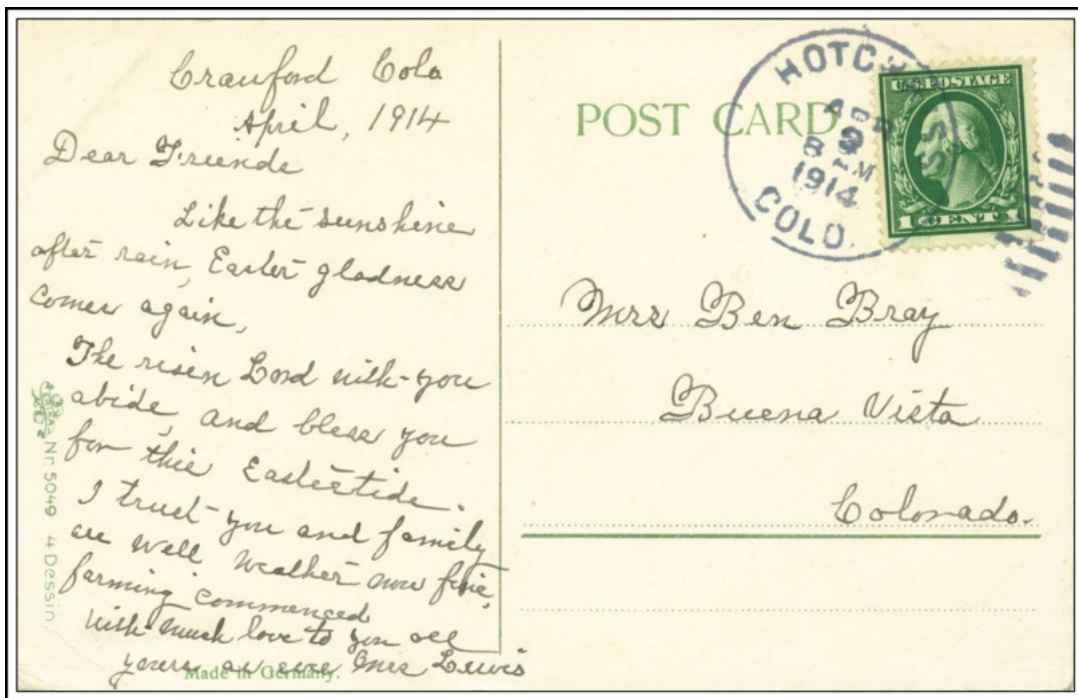 Crawford Colo
April, 1914
Dear Friends
Like the sunshine
after rain, Easter gladness
comes again,
The risen Lord with you
abide, and bless you
for this Eastertide.
I trust you and family
are well Weather now fine,
farming commenced
with much love to you all
yours as ever Mrs Lewis
Made in Germany.
Nr. 5049 4 Dessin
POST CARD
HOTCHKISS
APR
9
8 AM
1914
COLO.
U.S. POSTAGE
1 CENT 1
Mrs Ben Bray
Buena Vista
Colorado.